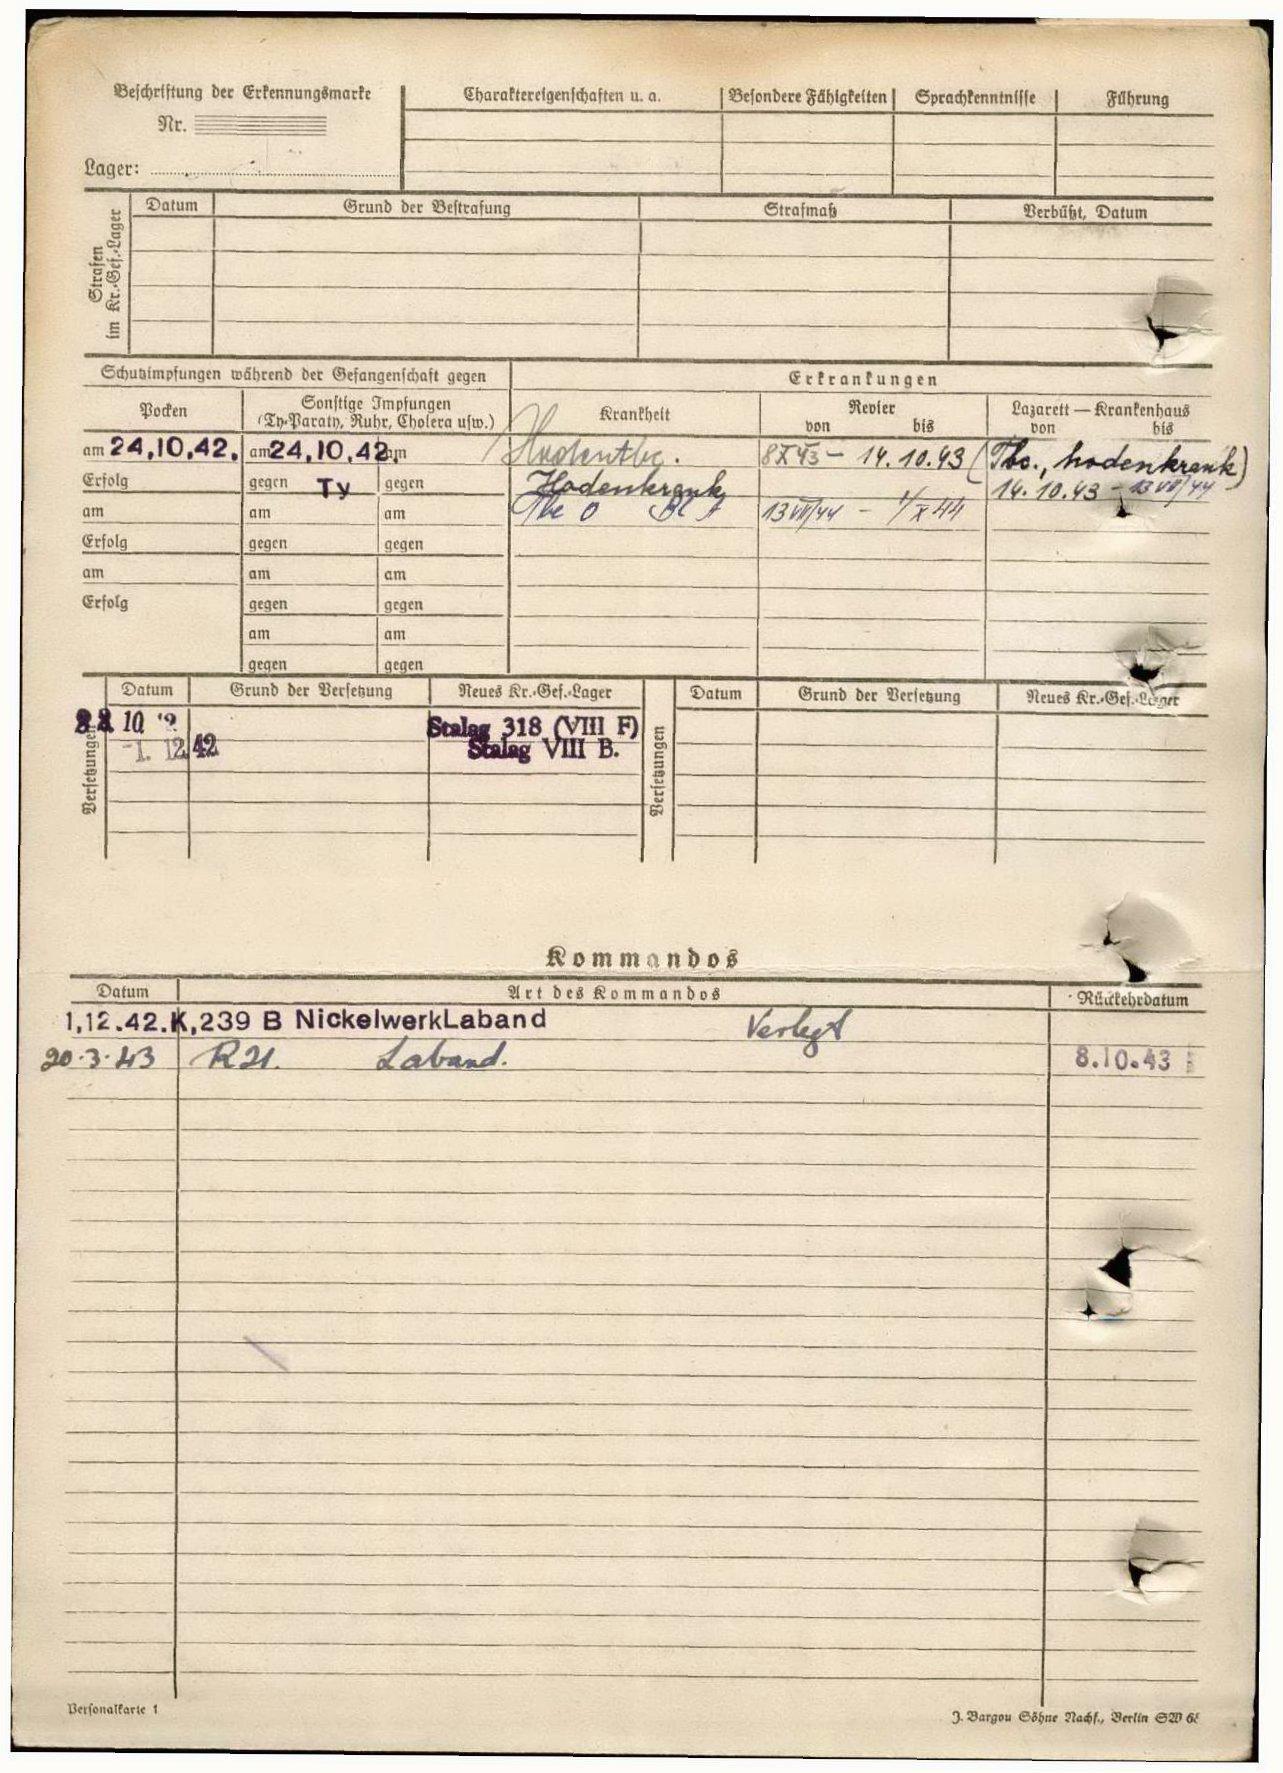 Beschriftung der Erkennungsmarke
Nr.
Lager:
Charaktereigenschaften u. a. Besondere Fähigkeiten Sprachkenntnisse Führung
Strafen
im Kr.-Gef.-Lager
Datum Grund der Bestrafung Strafmaß Verbüßt, Datum
Schutzimpfungen während der Gefangenschaft gegen
Erkrankungen
Pocken Sonstige Impfungen
(Ty-Paraty, Ruhr, Cholera usw.)
Krankheit Revier Lazarett — Krankenhaus
von bis von bis
am 24.10.42. am 24.10.42. am
Hodentbc. 8 X 43 - 14.10.43 (Tbc., hodenkrank)
Erfolg gegen Ty gegen
Hodenkrank 14.10.43 - 13 VII/44
am am am
Tbc 13 VII/44 - X 44
Erfolg gegen gegen
am am am
Erfolg gegen gegen
am am
gegen gegen
Versetzungen
Datum Grund der Versetzung Neues Kr.-Gef.-Lager
10 Stalag 318 (VIII F)
-1. 12. 42 Stalag VIII B.
Versetzungen
Datum Grund der Versetzung Neues Kr.-Gef.-Lager
Kommandos
Datum Art des Kommandos Rückkehrdatum
1,12.42. K,239 B Nickelwerk Laband Verlegt
20.3.43 R21. Laband. 8.10.43
Personalkarte 1
J. Bargou Söhne Nachf., Berlin SW 68